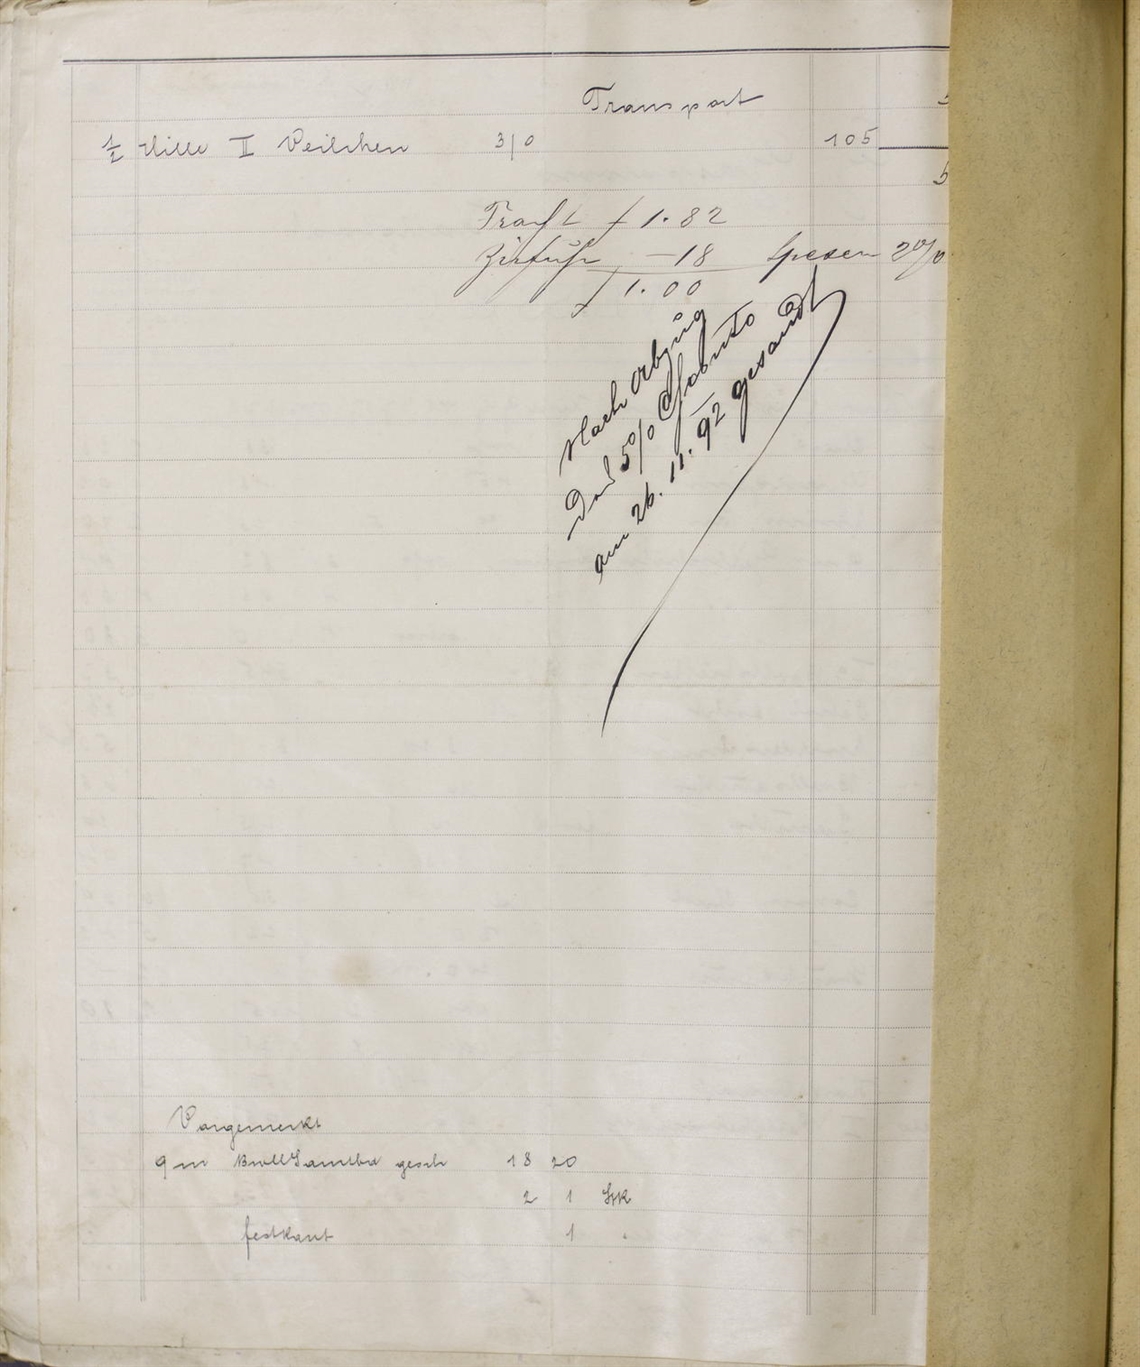 Transport
1/2 Mille II Veilchen 3/0 105
5
Fracht f 1.82
Zufuhr -18 Spesen 2%
f 1.00
Nach Abzug
von 5% Skonto
am 26.11.92 gesandt
Vorgemerkt
9 m gesch 18 20
2 1 Stk
festkant 1 "